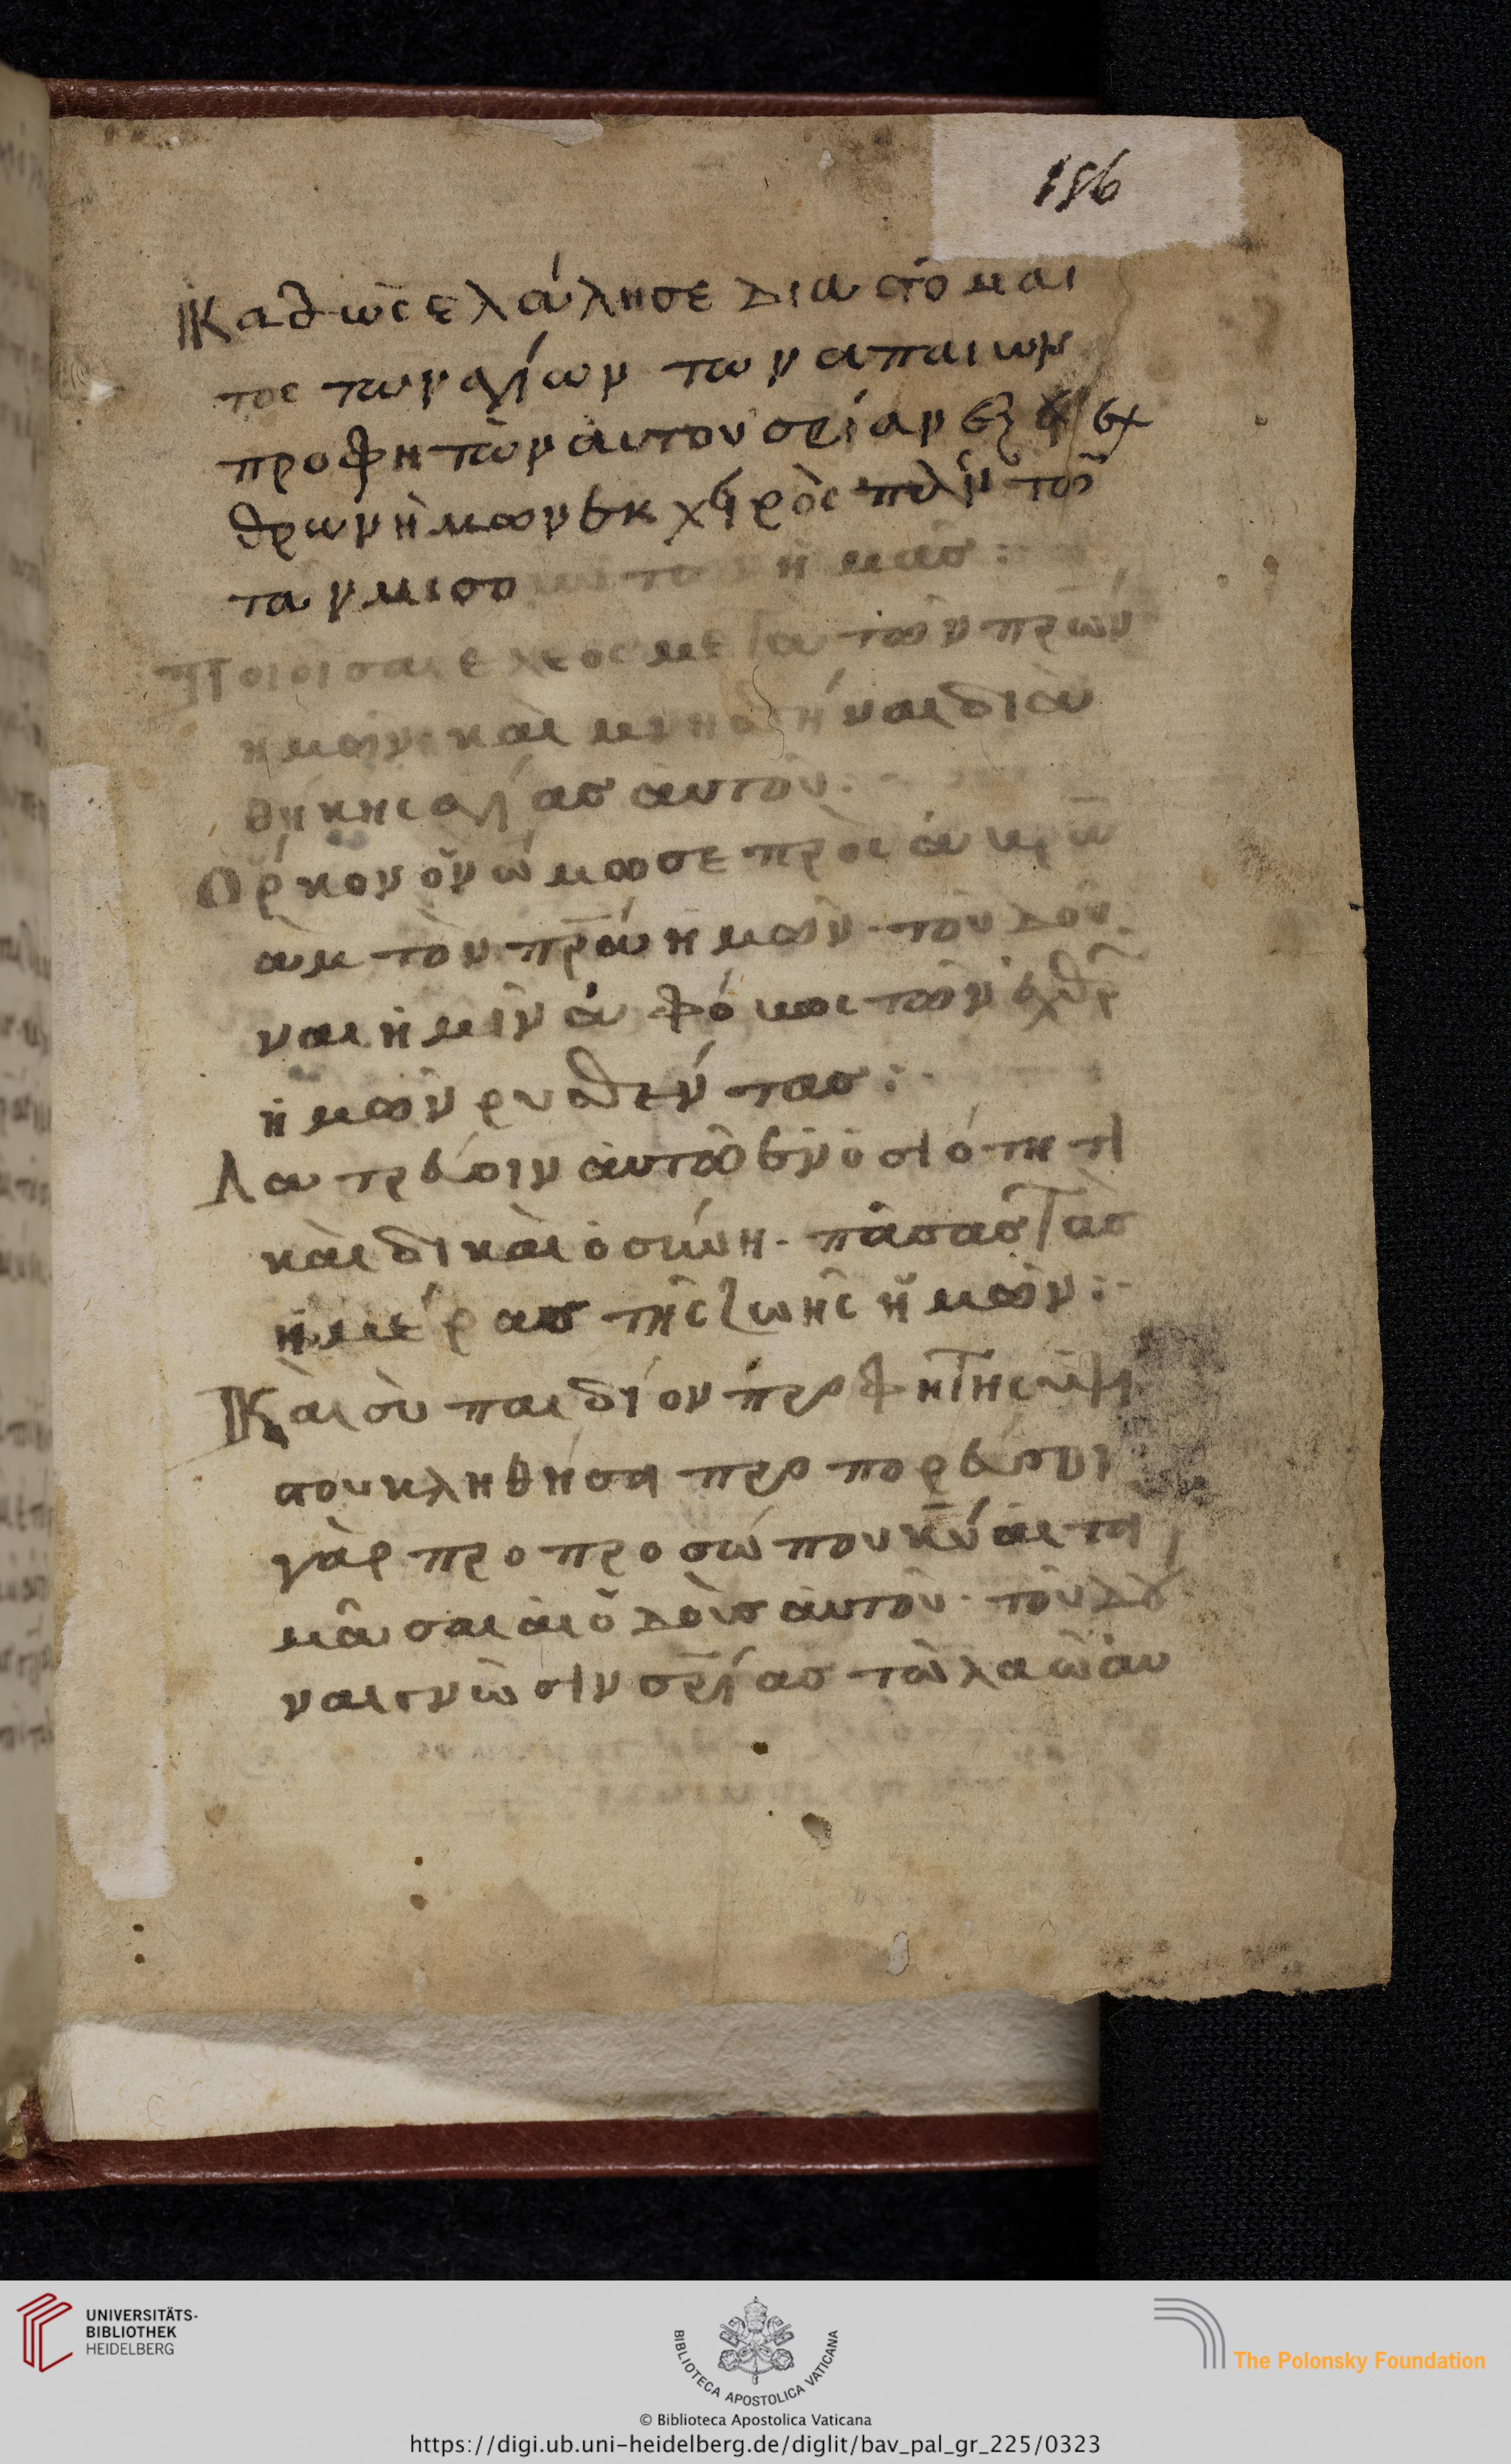 156
Καθὼς ελάλησε δια στόμα
τος των αγίων των απαιων
προφητῶν αυτου σρίαν εξ εχ
θρων ἡμων εκ χειρὸς πάν των
των μισούντων ἡμασ :
Ποιοισαι ελεος μετα των πρων
ημων και μνησθήναι δια
θήκης αγίασ αυτου :
Ὅρκον ὃν ώμοσε πρὸς ἁ
ὰμ τὸν πρα ἡμων · του δου
ναι ἡμιν ἀφόβως των εχθρ
ἡμων ρυσθεντασ :
Λατρεύειν αυτω εν ὁσιότητι
και δικαιοσύνη · πάσασ τὰσ
ἡμέρασ τῆς ζωῆς ἡμων :
Και σὺ παιδίον προφήτης ὑψι
στου κληθήση προπορεύση
γὰρ προ προσώπου κυ ετοι
μᾶσαι ὁδοὺσ αυτου · του δου
ναι γνῶσιν σρίασ τῶ λαῶ αυ
UNIVERSITÄTS-
BIBLIOTHEK
HEIDELBERG
BIBLIOTECA APOSTOLICA VATICANA
The Polonsky Foundation
© Biblioteca Apostolica Vaticana
https://digi.ub.uni-heidelberg.de/diglit/bav_pal_gr_225/0323